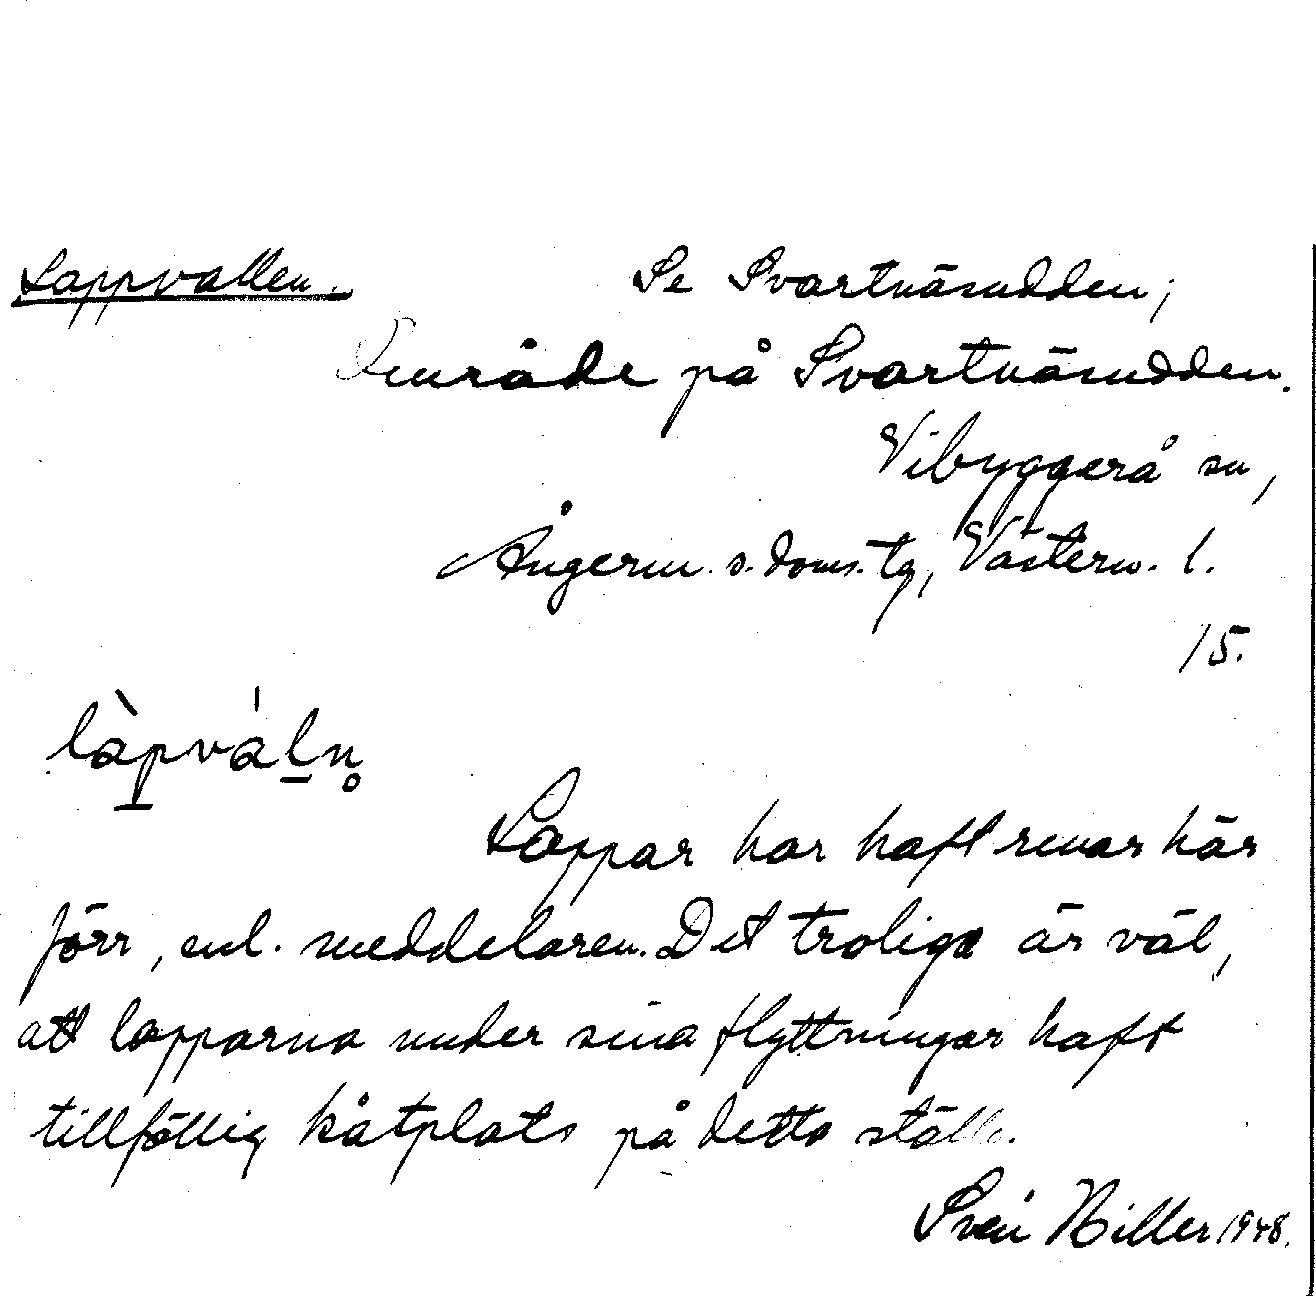 Lappvallen. Se Svartnäsudden;
Område på Svartnäsudden.
Vibyggerå sn,
Ångerm. s. doms. tg, Västern. l.
15.
làpváln̥
Lappar har haft renar här
förr, enl. meddelaren. Det troliga är väl,
att lapparna under sina flyttningar haft
tillfällig kåtplats på detta ställe.
Sven Hiller 1948.